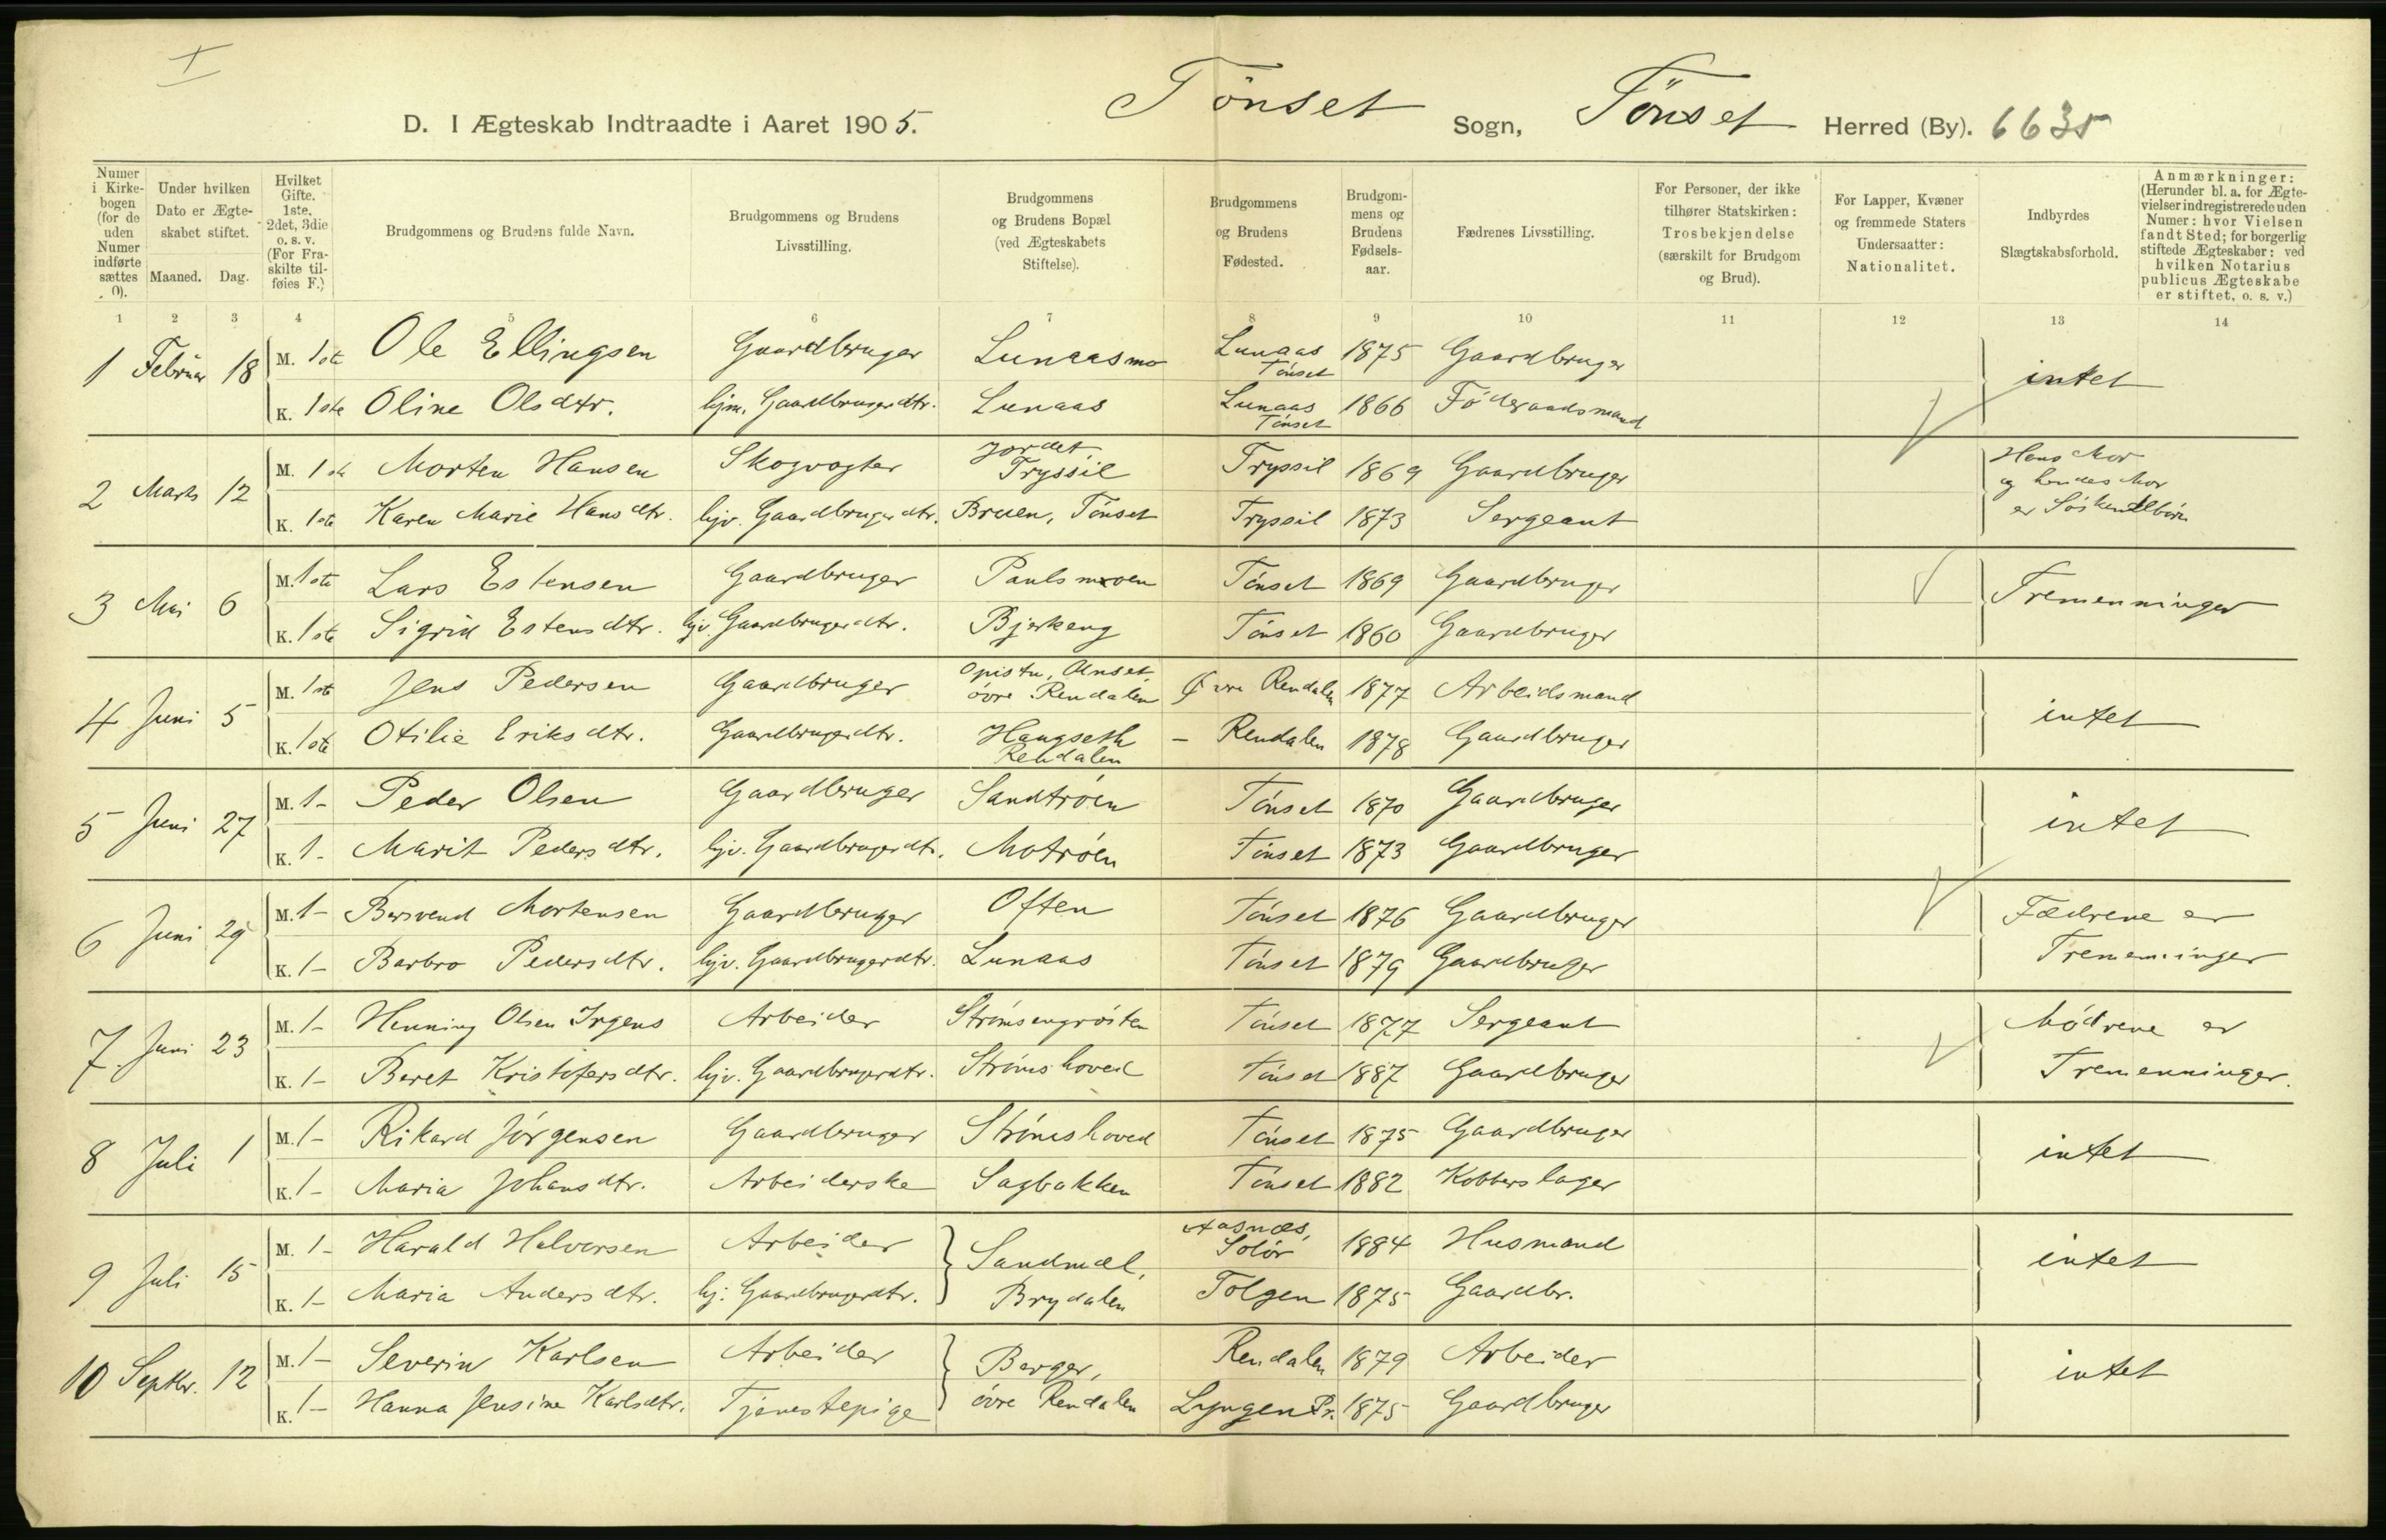 I
D. I Ægteskab Indtraadte i Aaret 1905. Tönset Sogn, Tönset Herred (By). 6635
Numer i Kirkebogen (for de uden Numer indførte sættes 0).
Under hvilken Dato er Ægteskabet stiftet.
Maaned. Dag.
Hvilket Gifte. 1ste, 2det, 3die o. s. v. (For Fraskilte tilføies F.)
Brudgommens og Brudens fulde Navn.
Brudgommens og Brudens Livsstilling.
Brudgommens og Brudens Bopæl (ved Ægteskabets Stiftelse).
Brudgommens og Brudens Fødested.
Brudgommens og Brudens Fødselsaar.
Fædrenes Livsstilling.
For Personer, der ikke tilhører Statskirken: Trosbekjendelse (særskilt for Brudgom og Brud).
For Lapper, Kvæner og fremmede Staters Undersaatter: Nationalitet.
Indbyrdes Slægtskabsforhold.
Anmærkninger: (Herunder bl. a. for Ægtevielser indregistrerede uden Numer: hvor Vielsen fandt Sted; for borgerlig stiftede Ægteskaber: ved hvilken Notarius publicus Ægteskabe er stiftet, o. s. v.)
1 2 3 4 5 6 7 8 9 10 11 12 13 14
1 Februar 18 M. 1ste Ole Ellingsen Gaardbruger Lunaasmo Lunaas Tönset 1875 Gaardbruger intet
K. 1ste Oline Olsdtr. hjm. Gaardbrugerdtr. Lunaas Lunaas Tönset 1866 Föderaadsmand
2 Marts 12 M. 1ste Morten Hansen Skogvogter Jordet Tryssil Tryssil 1869 Gaardbruger Hans Mor og hendes Mor er Söskendbörn
K. 1ste Karen Marie Hansdtr. hjv. Gaardbrugerdtr. Bruen, Tönset Tryssil 1873 Sergeant
3 Mai 6 M. 1ste Lars Estensen Gaardbruger Paulsmoen Tönset 1869 Gaardbruger Tremenninger
K. 1ste Sigrid Estensdtr. hjv. Gaardbrugerdtr. Bjerkeng Tönset 1860 Gaardbruger
4 Juni 5 M. 1ste Jens Pedersen Gaardbruger Opistu, Unset, övre Rendalen Övre Rendalen 1877 Arbeidsmand intet
K. 1ste Otilie Eriksdtr. Gaardbrugerdtr. Haugseth Rendalen – Rendalen 1878 Gaardbruger
5 Juni 27 M. 1- Peder Olsen Gaardbruger Sandtröen Tönset 1870 Gaardbruger intet
K. 1- Marit Pedersdtr. hjv. Gaardbrugerdtr. Motröen Tönset 1873 Gaardbruger
6 Juni 29 M. 1- Bersvend Mortensen Gaardbruger Often Tönset 1876 Gaardbruger Fædrene er Tremenninger
K. 1- Barbro Pedersdtr. hjv. Gaardbrugerdtr. Lunaas Tönset 1879 Gaardbruger
7. Juni 23 M. 1- Henning Olsen Irgens Arbeider Strömsengrösten Tönset 1877 Sergeant Mödrene er Tremenninger.
K. 1- Beret Kristofersdtr. hjv. Gaardbrugerdtr. Strömshoved Tönset 1887 Gaardbruger
8 Juli 1 M. 1- Rikard Jörgensen Gaardbruger Strömshoved Tönset 1875 Gaardbruger intet
K. 1- Maria Johansdtr. Arbeiderske Sagbakken Tönset 1882 Kobberslager
9 Juli 15 M. 1- Harald Halvorsen Arbeider Sandmæl, Aasnæs, Solör 1884 Husmand intet
K. 1- Maria Andersdtr. hj. Gaardbrugerdtr. Brydalen Tolgen 1875 Gaardbr.
10 Septbr. 12 M. 1- Severin Karlsen Arbeider Berger, Rendalen 1879 Arbeider intet
K. 1- Hanna Jensine Karlsdtr. Tjenestepige övre Rendalen Lyngen Pr. 1875 Gaardbruger